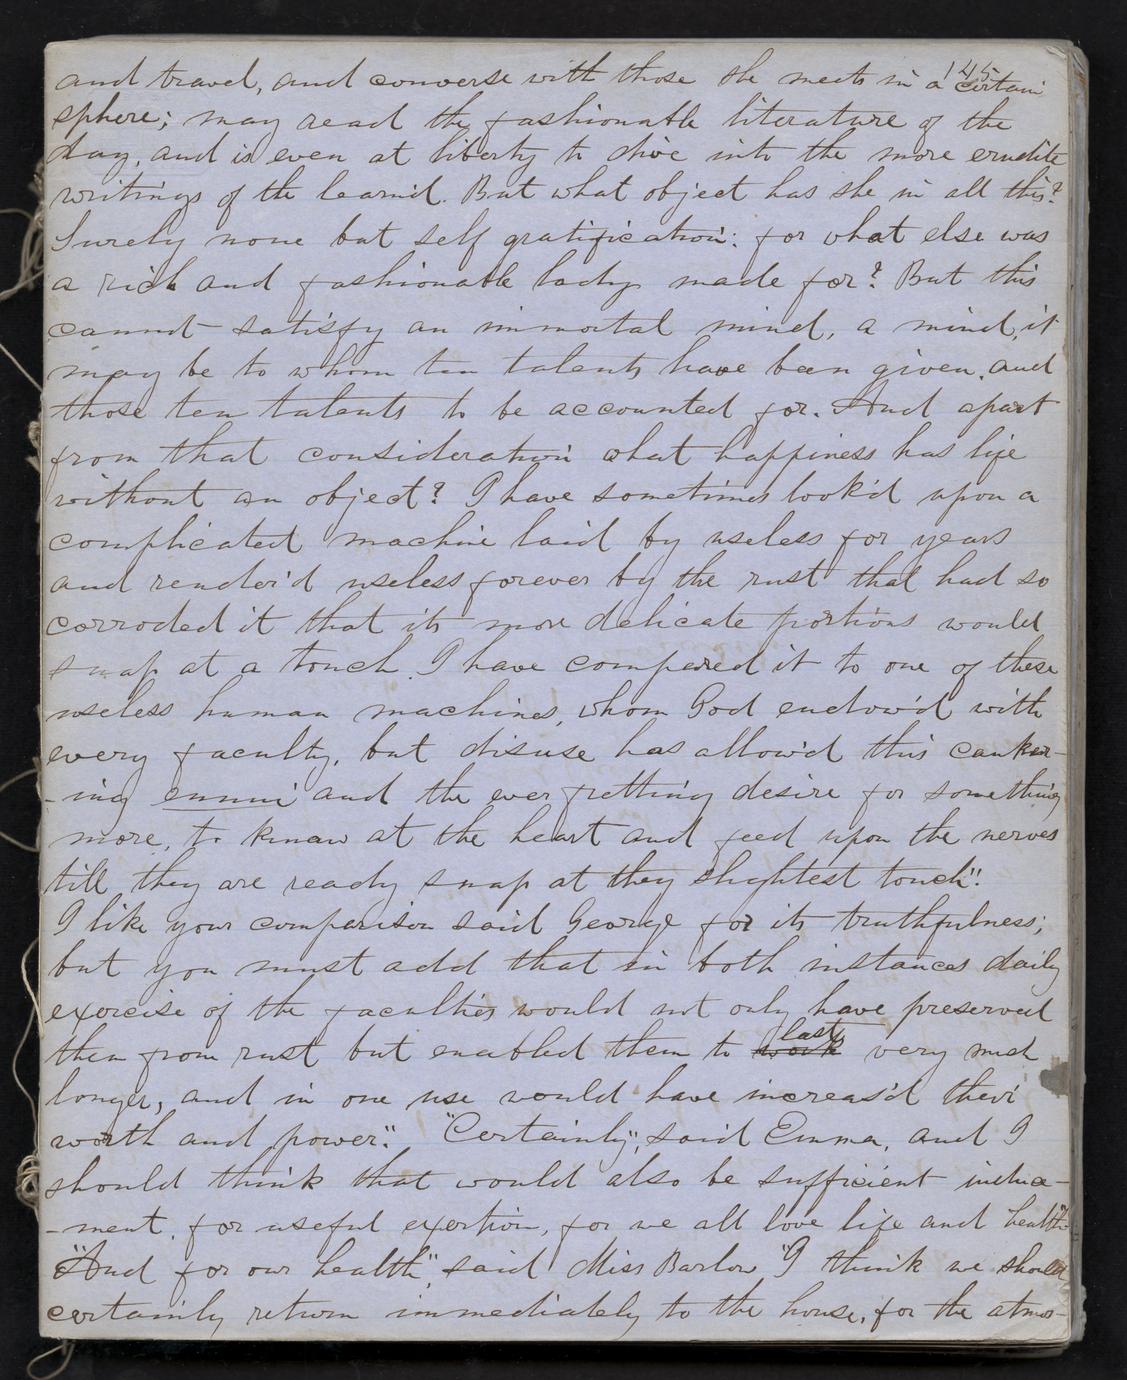 145
and travel, and converse with those she meets in a certain
sphere; may read the fashionable literature of the
day, and is even at liberty to dive into the more erudite
writings of the learnid. But what object has she in all this?
Surely none but self gratification: for what else was
a rich and fashionable lady made for? But this
cannot satisfy an immortal mind, a mind, it
may be to whom ten talents have been given, and
those ten talents to be accounted for. And apart
from that consideration what happiness has life
without an object? I have sometimes look'd upon a
complicated machine laid by useless for years
and render'd useless forever by the rust that had so
corroded it that its more delicate portions would
snap at a touch. I have compared it to one of these
useless human machines, whom God endow'd with
every faculty, but disuse has allow'd this canker-
-ing ennui and the ever fretting desire for something
more, to knaw at the heart and feed upon the nerves
till they are ready snap at they slightest touch".
I like your comparison said George for its truthfulness;
but you must add that in both instances daily
exercise of the faculties would not only have preserved
them from rust but enabled them to work last very much
longer, and in one use would have increas'd their
worth and power". "Certainly", said Emma, and I
should think that would also be sufficient induce-
-ment, for useful exertion, for we all love life and health".
"And for our health", said Miss Barlow "I think we should
certainly return immediately to the house, for the atmo-